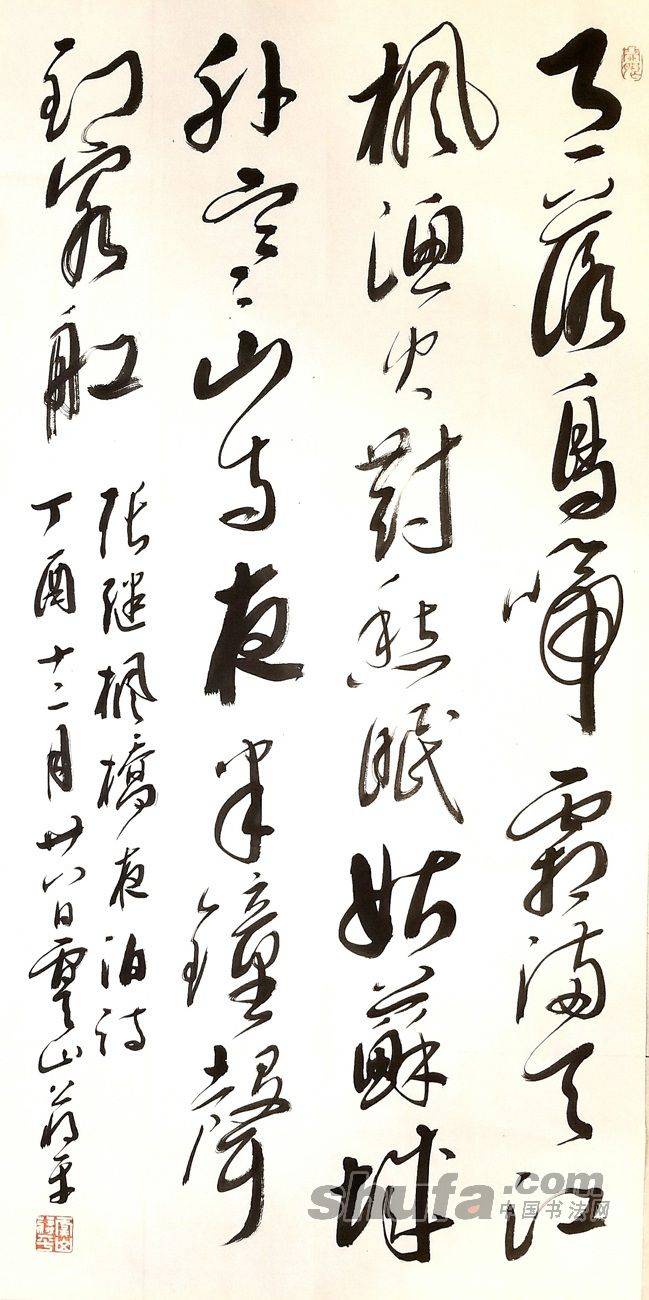 月落烏啼霜滿天江
楓漁火對愁眠姑蘇城
外寒山寺夜半鐘聲
到客船
張繼楓橋夜泊詩
丁酉十二月廿八日雲山蔣平
shufa.com
中国书法网